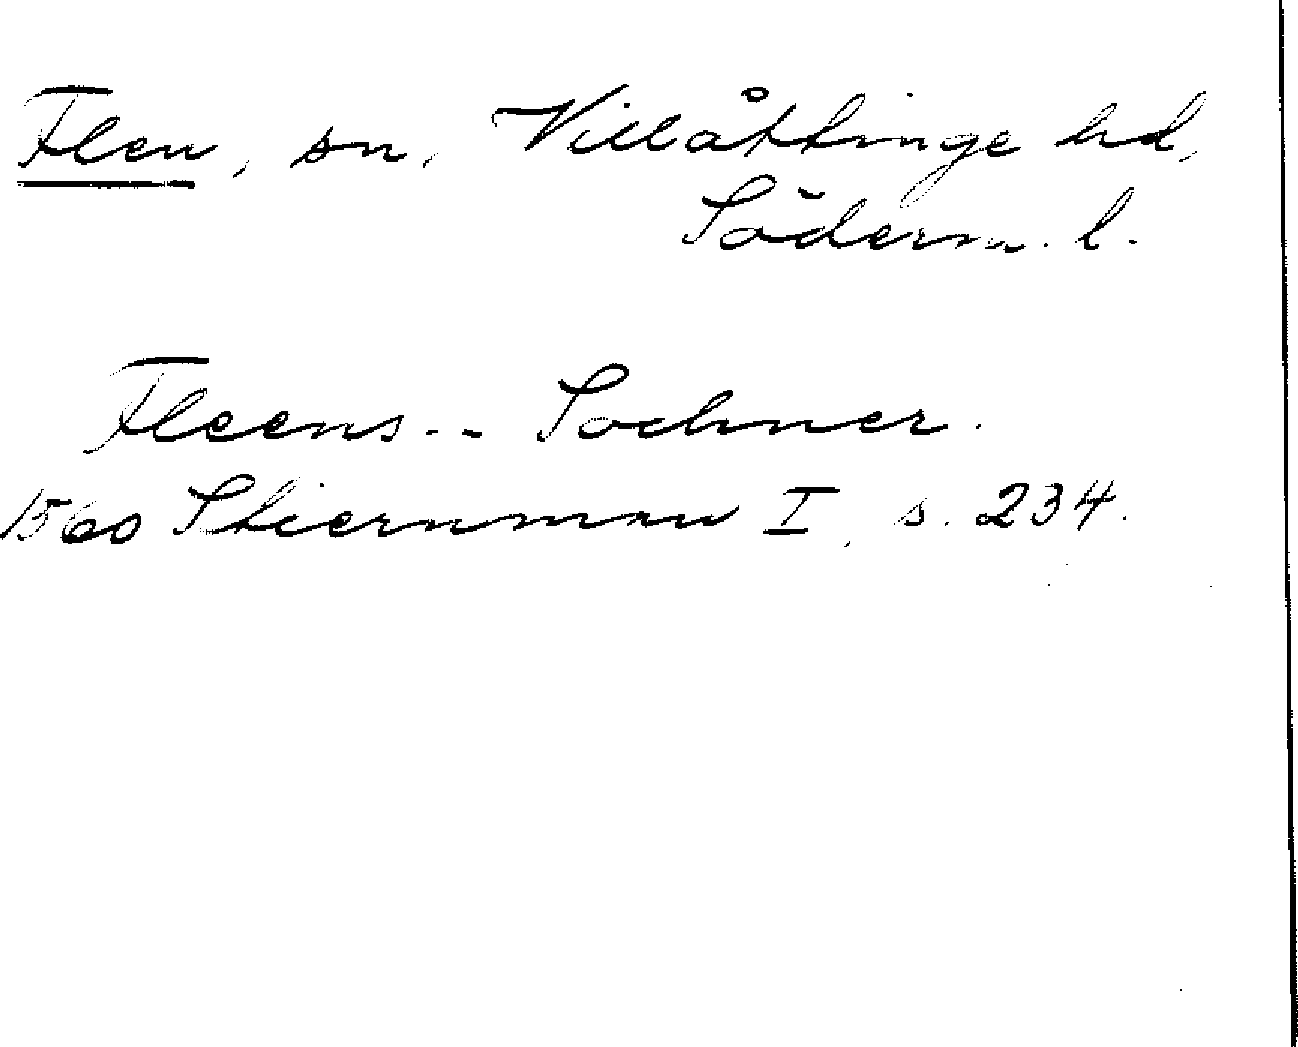 Flen, sn, Villåttinge hd,
Söderm. l.
Fleens-- Sochner.
1560 Stiernman I, s. 234.